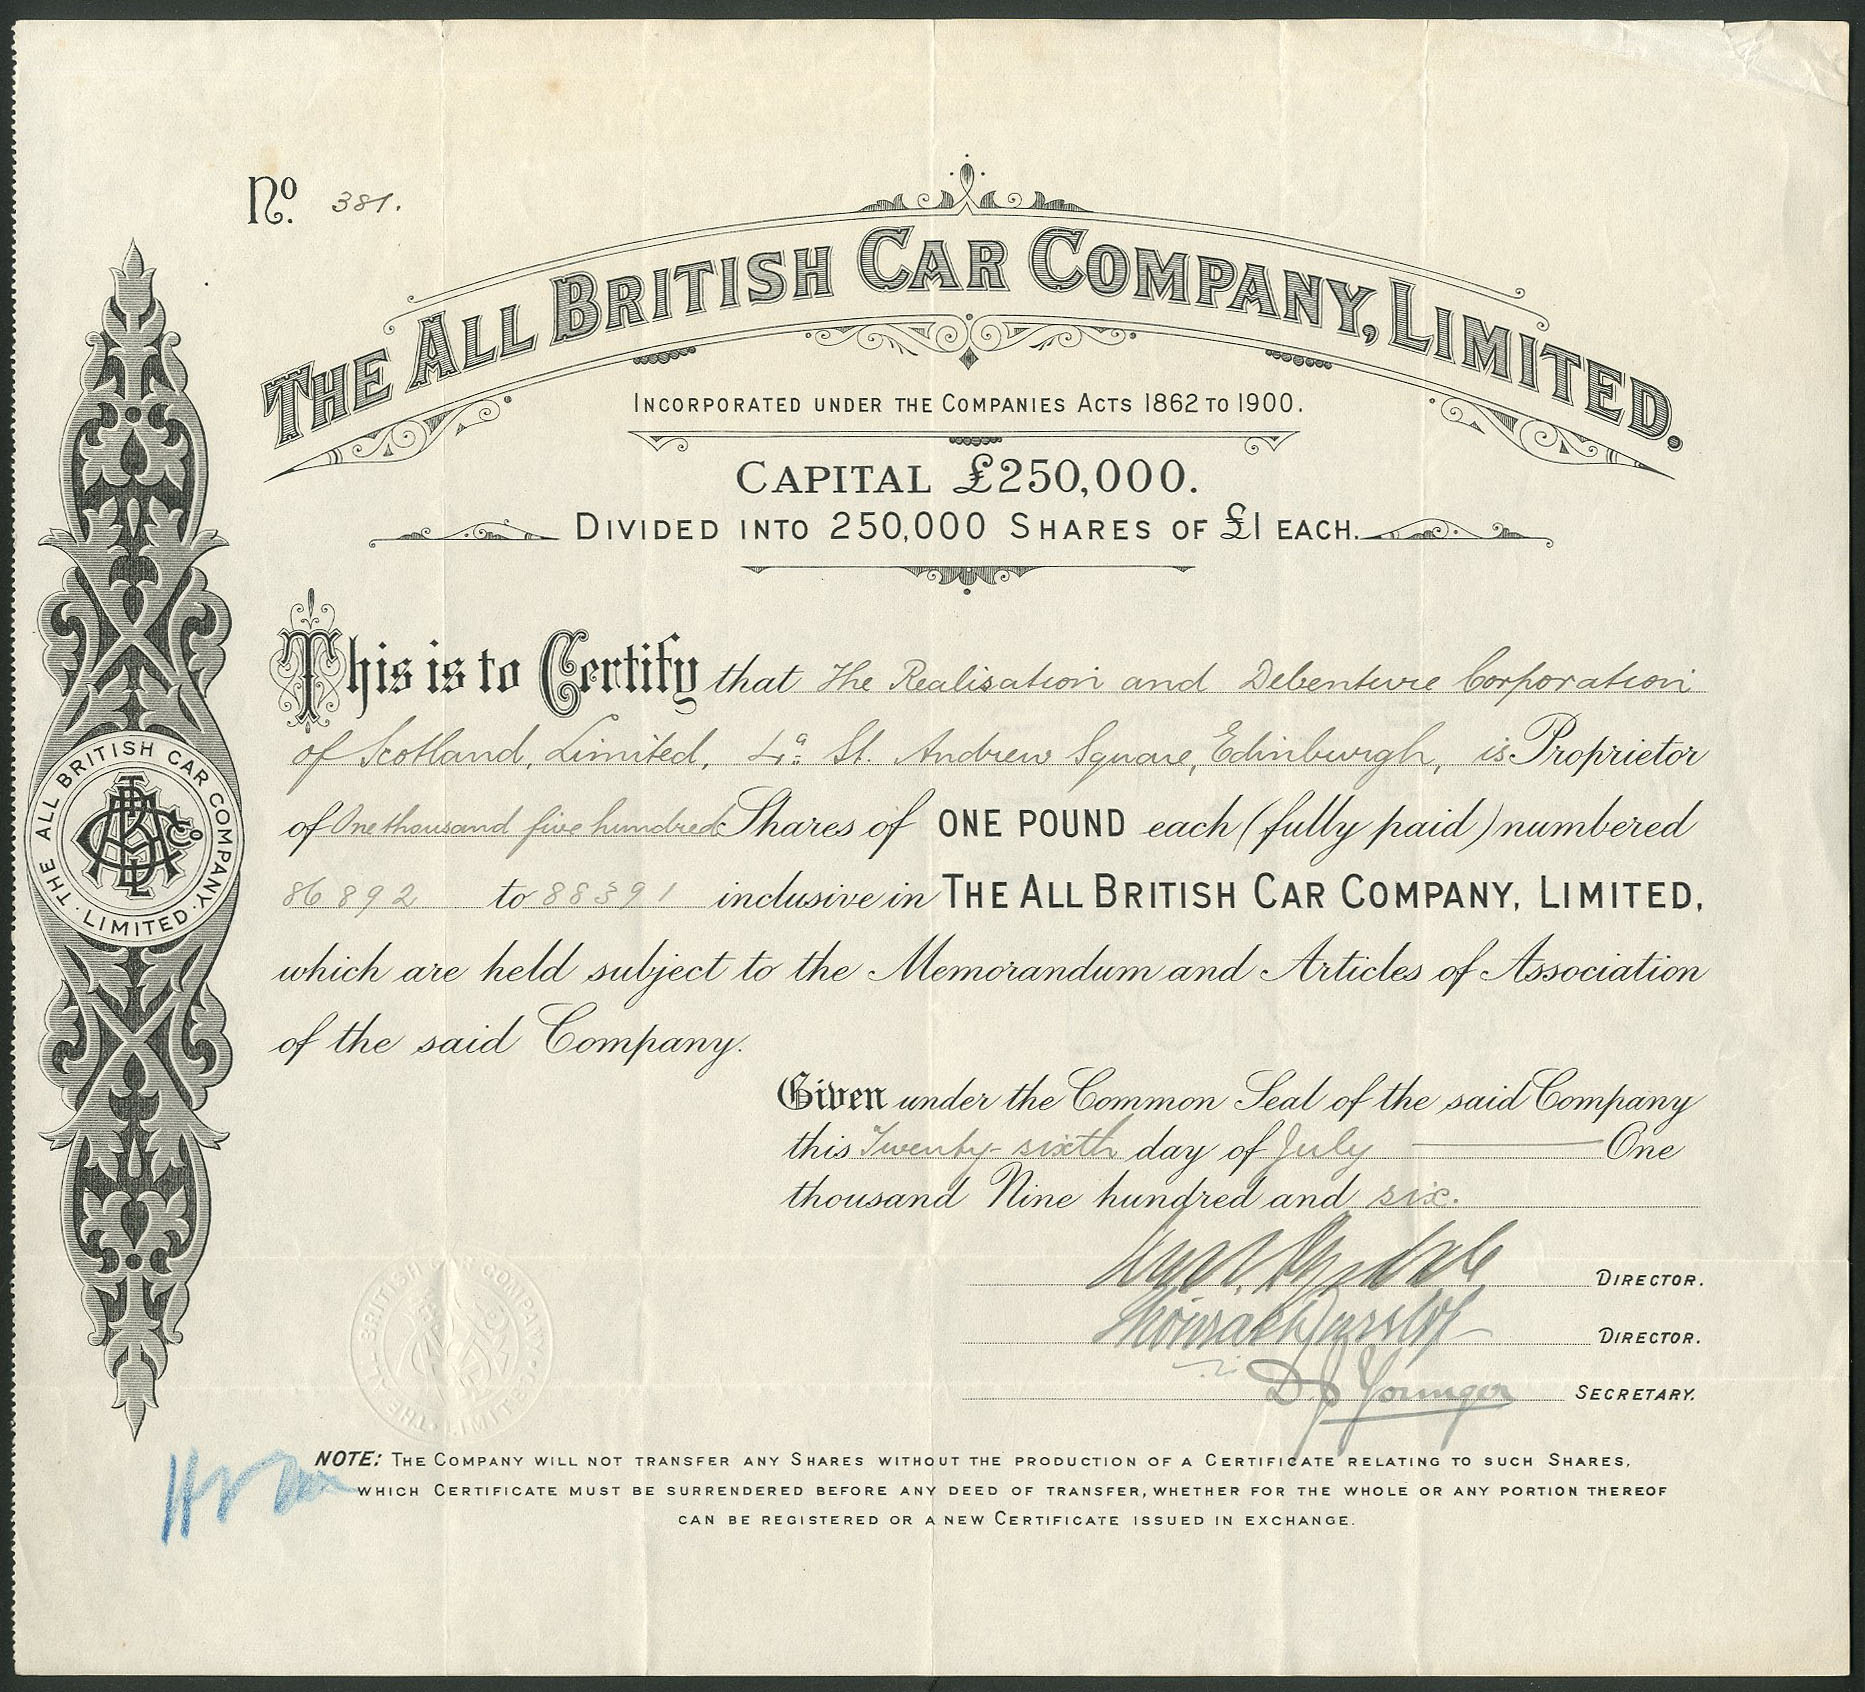 No. 381.
THE ALL BRITISH CAR COMPANY, LIMITED.
INCORPORATED UNDER THE COMPANIES ACTS 1862 TO 1900.
CAPITAL £250,000.
DIVIDED INTO 250,000 SHARES OF £1 EACH.
This is to Certify that The Realisation and Debenture Corporation
of Scotland, Limited, 4a St. Andrew Square, Edinburgh, is Proprietor
of One thousand five hundred Shares of ONE POUND each (fully paid) numbered
86892 to 88391 inclusive in THE ALL BRITISH CAR COMPANY, LIMITED,
which are held subject to the Memorandum and Articles of Association
of the said Company.
Given under the Common Seal of the said Company
this Twenty-sixth day of July One
thousand Nine hundred and six.
DIRECTOR.
DIRECTOR.
D J Younger SECRETARY.
NOTE: THE COMPANY WILL NOT TRANSFER ANY SHARES WITHOUT THE PRODUCTION OF A CERTIFICATE RELATING TO SUCH SHARES,
WHICH CERTIFICATE MUST BE SURRENDERED BEFORE ANY DEED OF TRANSFER, WHETHER FOR THE WHOLE OR ANY PORTION THEREOF
CAN BE REGISTERED OR A NEW CERTIFICATE ISSUED IN EXCHANGE.
THE ALL BRITISH CAR COMPANY. LIMITED.
THE ALL BRITISH CAR COMPANY. LIMITED